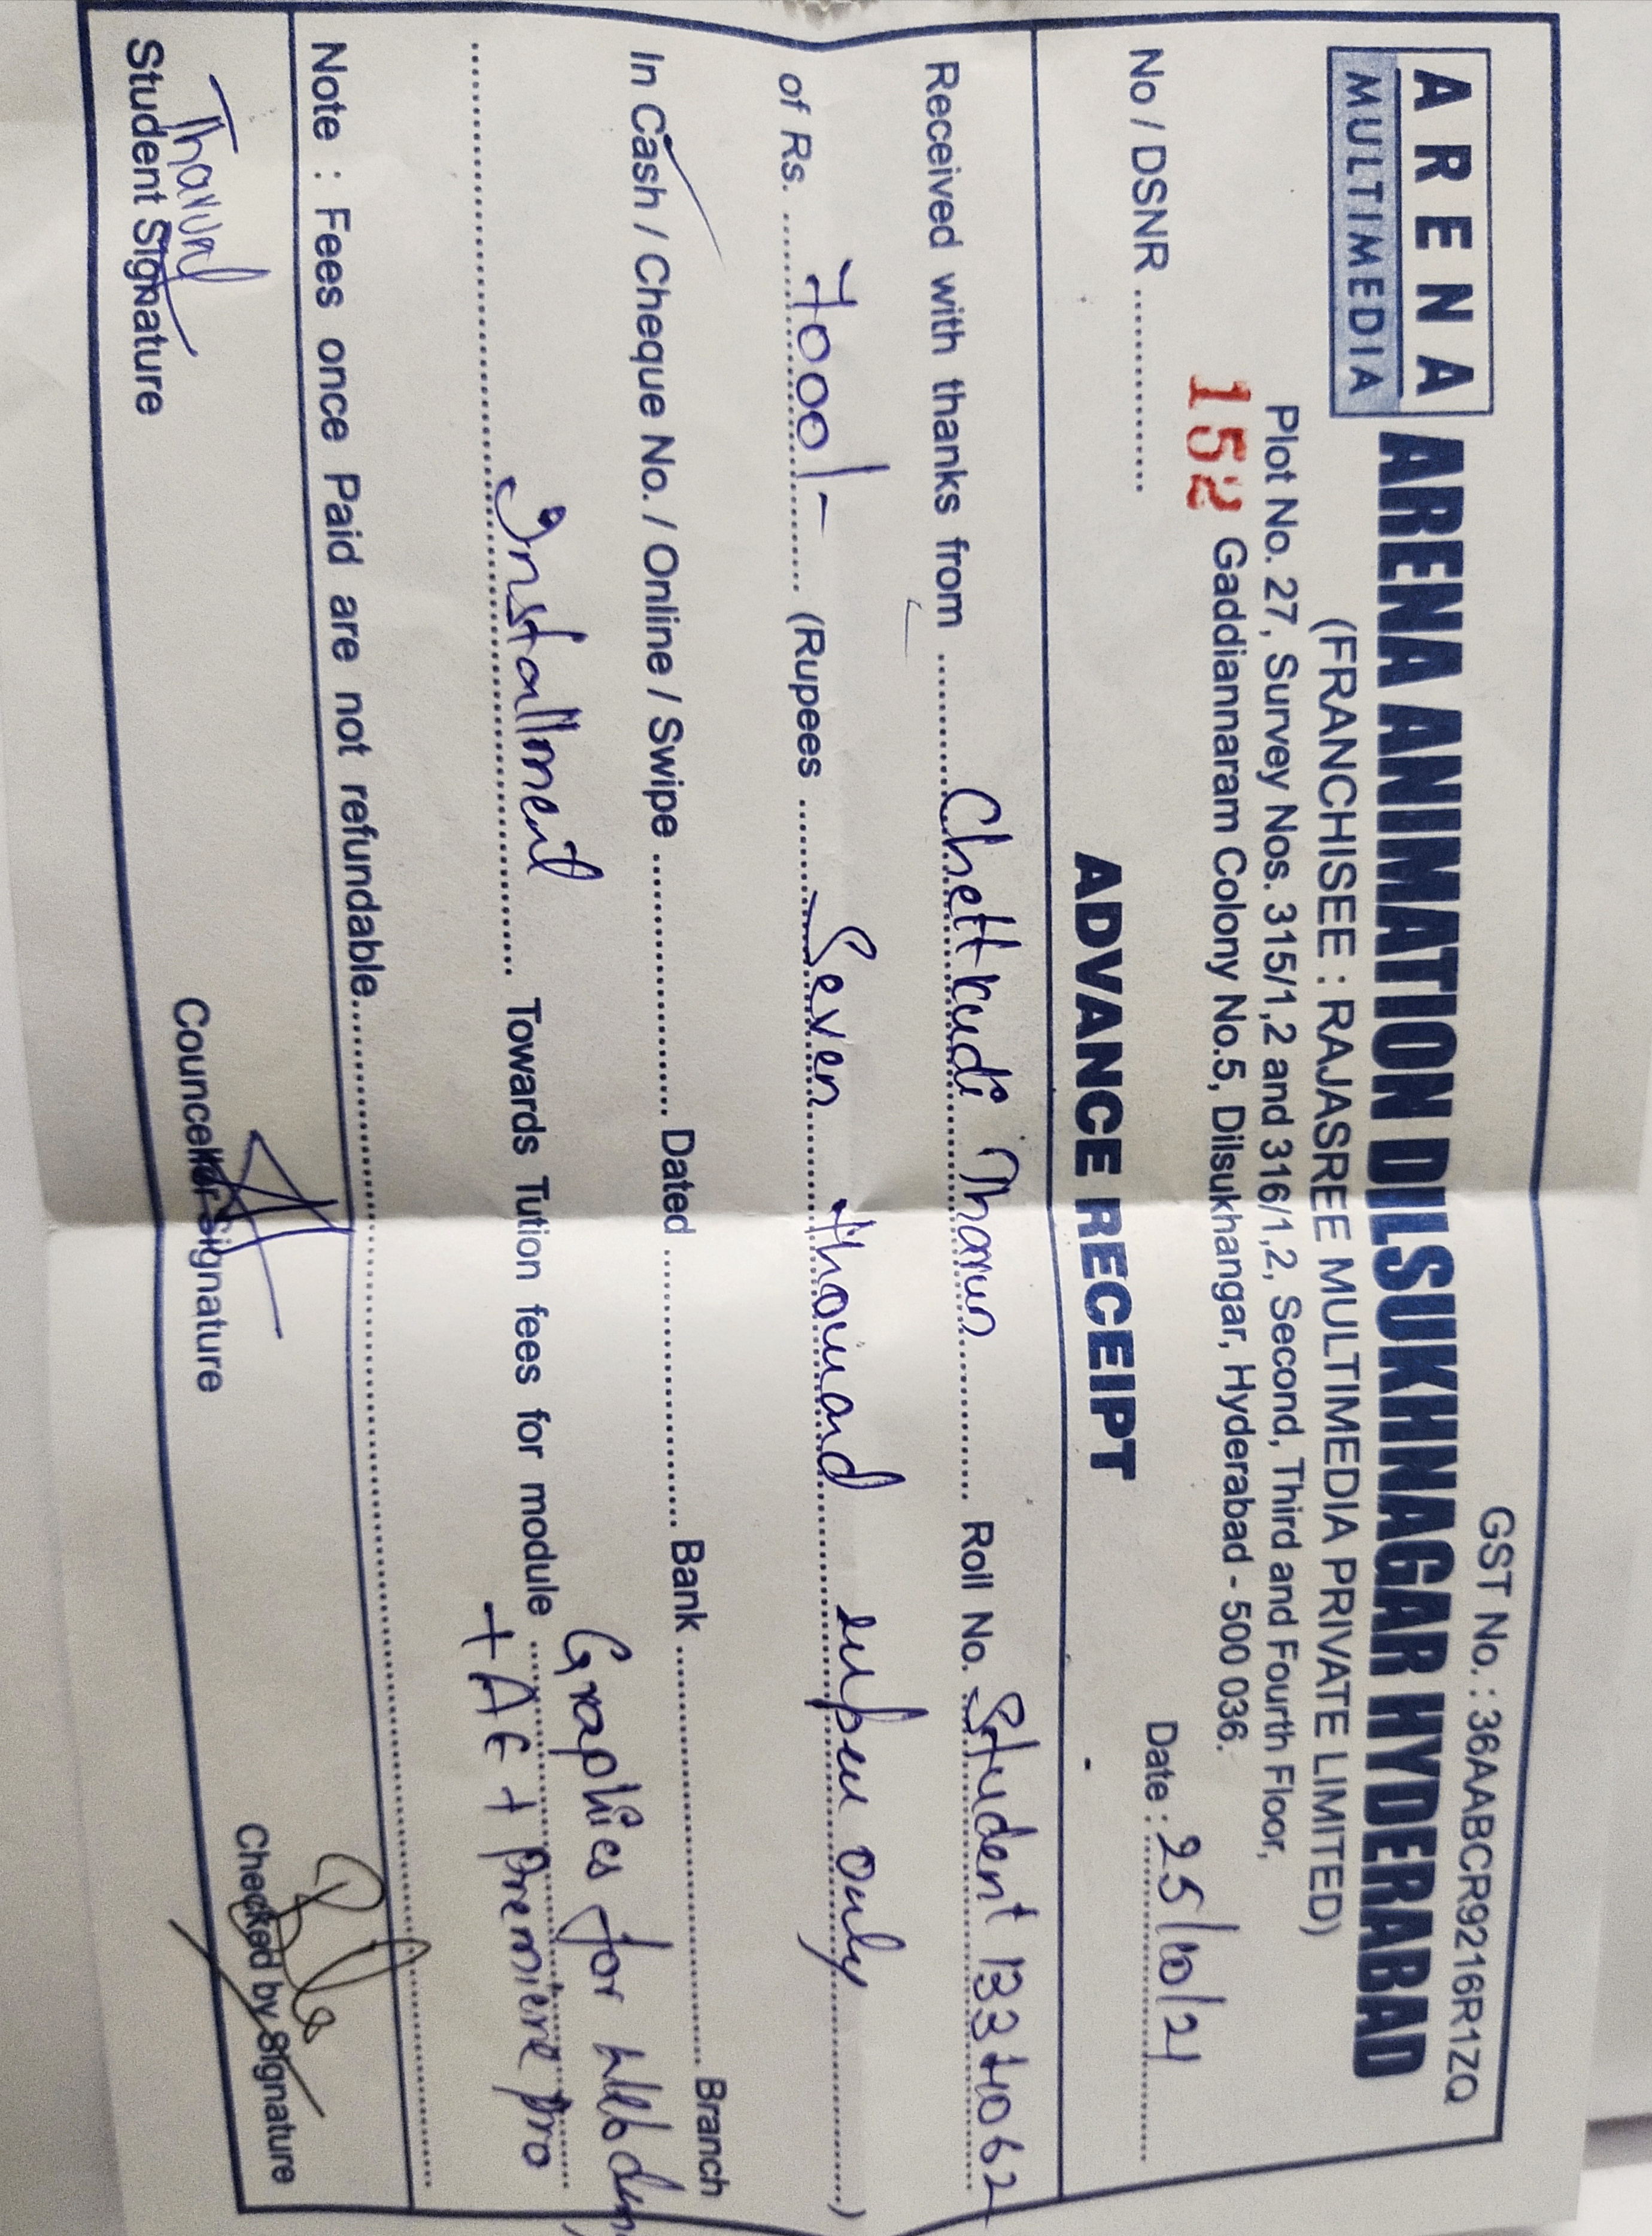 GST No. : 36AABCR9216R1ZQ
ARENA
MULTIMEDIA
ARENA ANIMATION DILSUKHNAGAR HYDERABAD
(FRANCHISEE : RAJASREE MULTIMEDIA PRIVATE LIMITED)
Plot No. 27, Survey Nos. 315/1,2 and 316/1,2, Second, Third and Fourth Floor,
152 Gaddiannaram Colony No.5, Dilsukhangar, Hyderabad - 500 036.
No / DSNR .............. Date : 25/10/21
ADVANCE RECEIPT
Received with thanks from Chettkudi Tharun Roll No. Student
of Rs. 7000/- (Rupees Seven thousand rupees only)
In Cash / Cheque No. / Online / Swipe .............. Dated .............. Bank .............. Branch
Installment Towards Tution fees for module Graphics for
+ AE + Premiere pro
Note : Fees once Paid are not refundable.
Student Signature Counceller Signature Checked by Signature